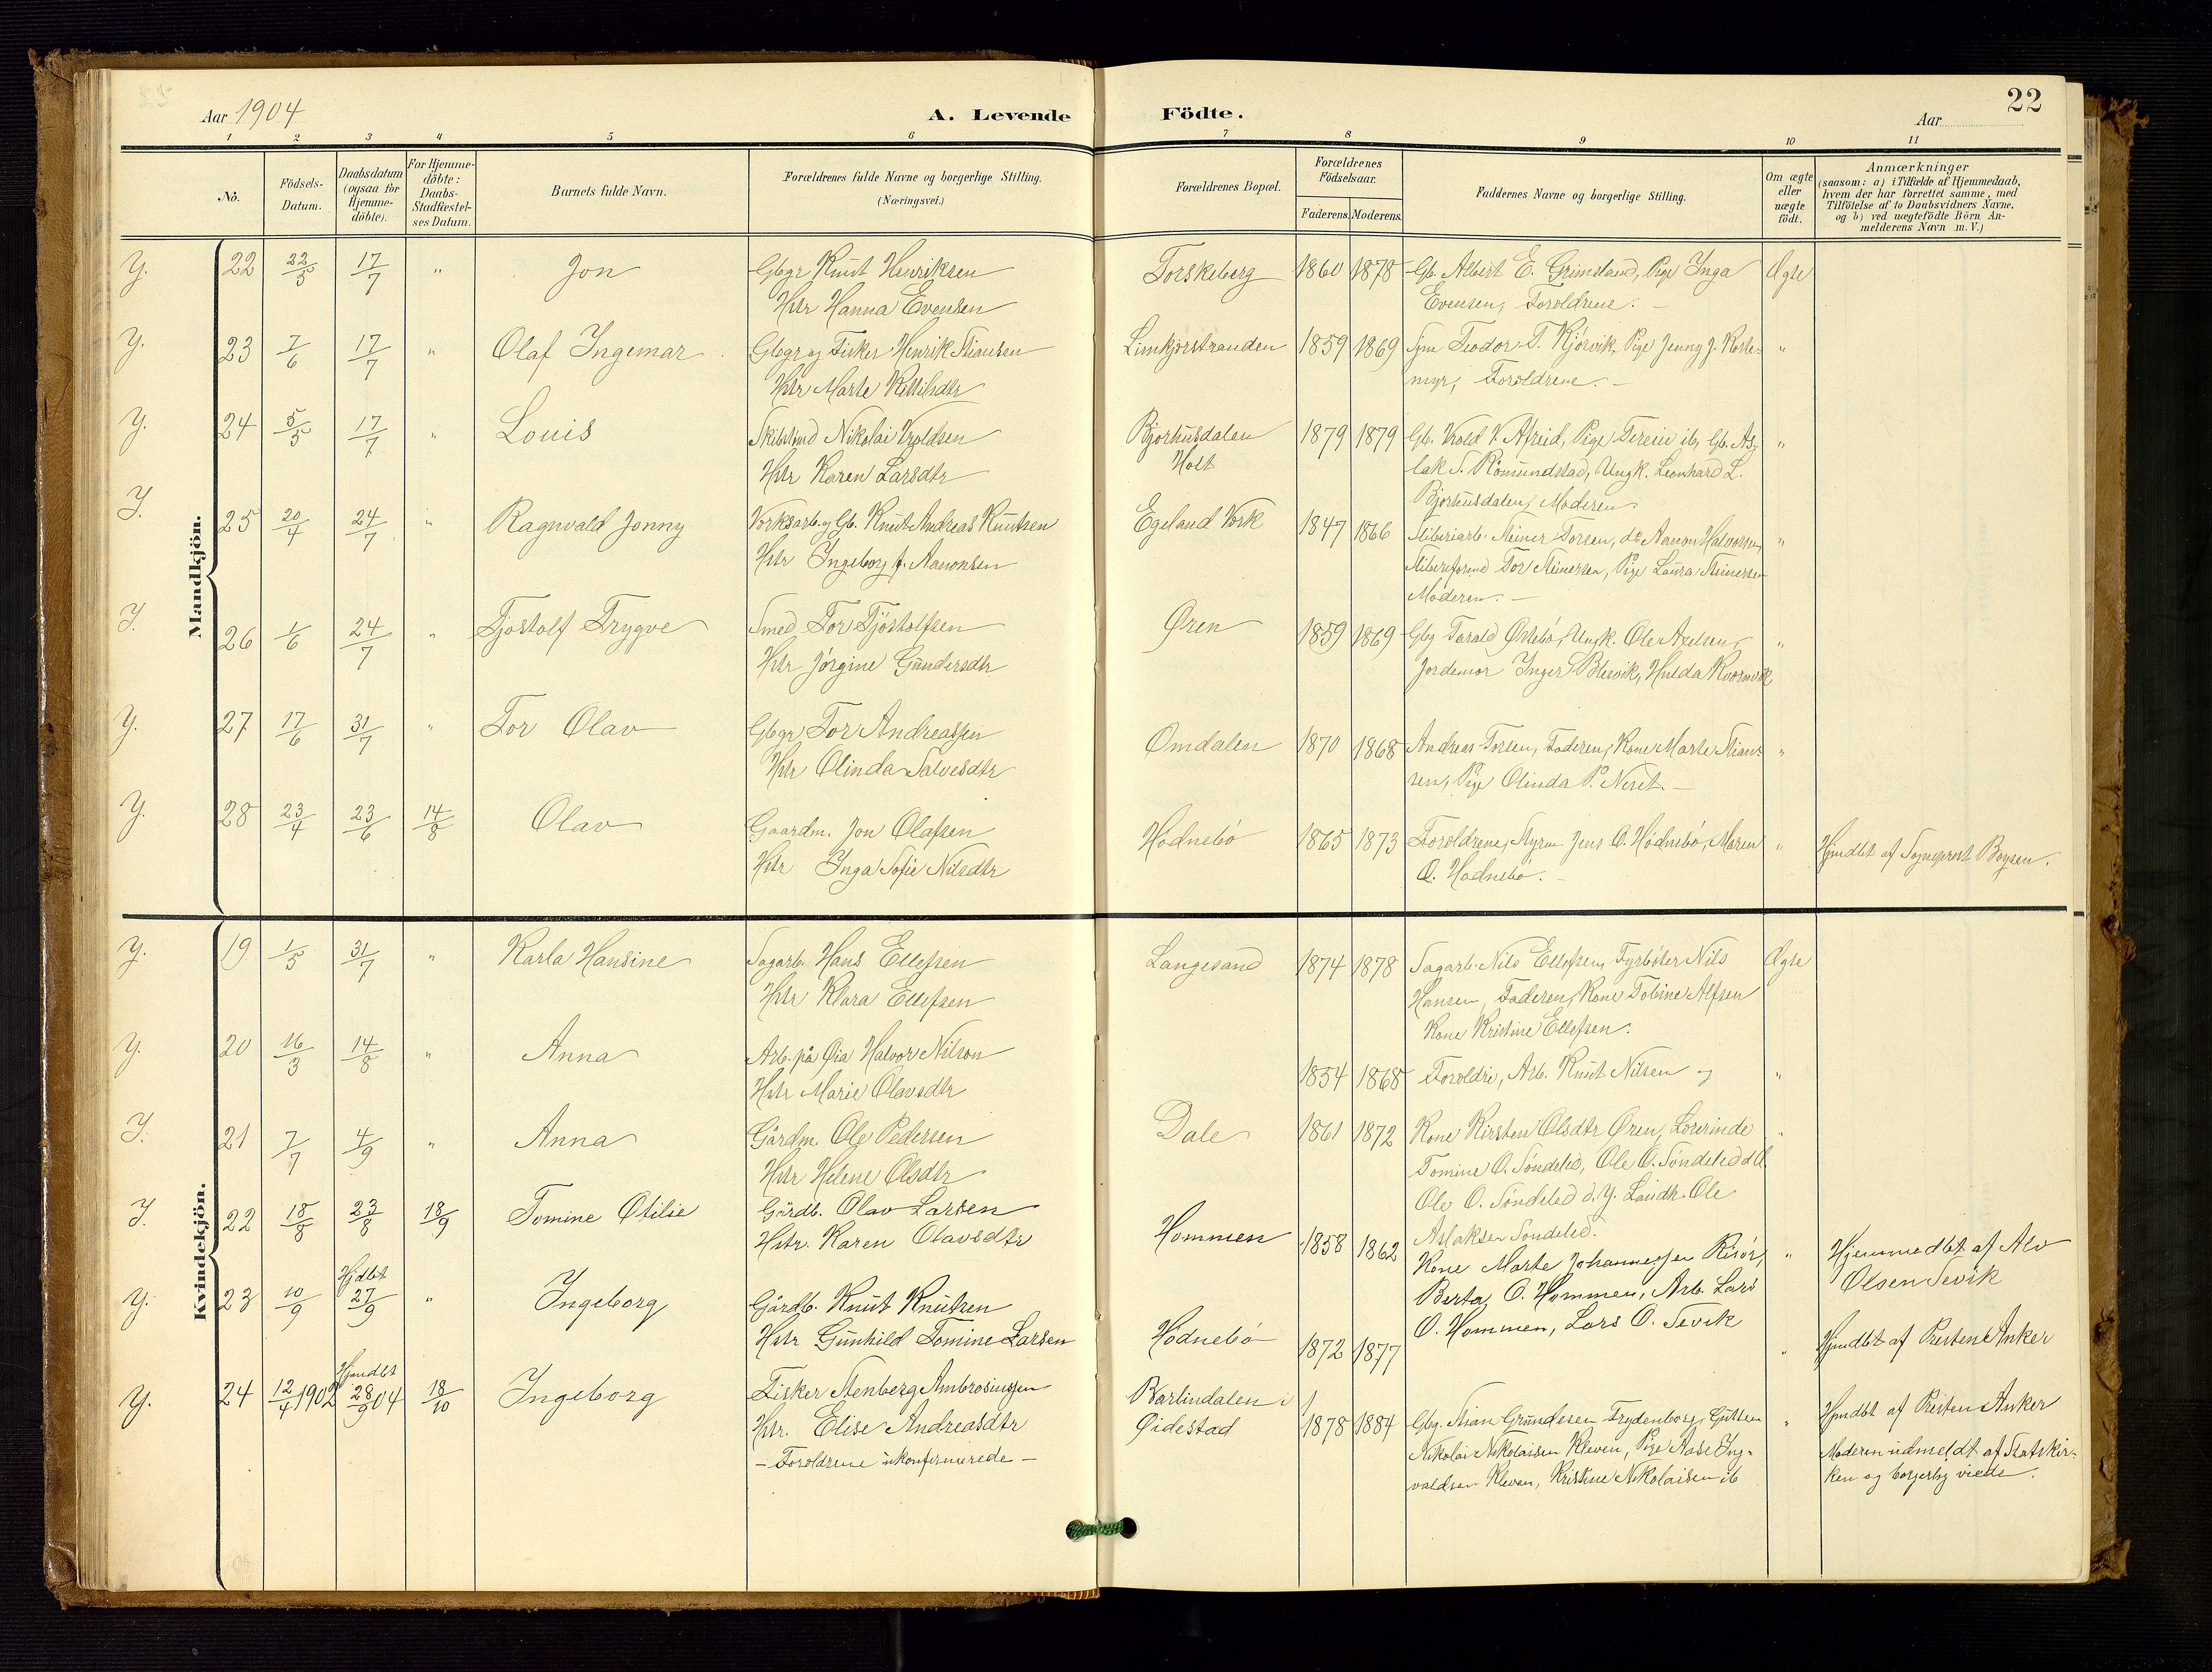 22
Aar 1904
A. Levende Födte.
Aar
1 2 3 4 5 6 7 8 9 10 11
No.
Födsels-
Datum.
Daabsdatum
(ogsaa for
Hjemme-
döbte).
For Hjemme-
döbte:
Daabs-
Stadfæstel-
ses Datum.
Barnets fulde Navn.
Forældrenes fulde Navne og borgerlige Stilling.
(Næringsvei.)
Forældrenes Bopæl.
Forældrenes
Födselsaar.
Faderens. Moderens.
Faddernes Navne og borgerlige Stilling.
Om ægte
eller
uægte
født.
Anmærkninger
(saasom: a) i Tilfælde af Hjemmedaab,
hvem der har forrettet samme, med
Tilföielse af to Daabsvidners Navne,
og b) ved uægtefödte Börn An-
melderens Navn m. V.)
Mandkjön.
Y. 22 22/5 17/7 " Jon Gbgr Knut Henriksen Torskeberg 1860 1878 Gb. Albert E. Grimsland, Pige Inga Ægte
Hstr Hanna Evensen Evensen, Foroldrene. —
Y. 23 7/6 17/7 " Olaf Ingemar Gbgr og Fisker Henrik Stiansen Limkjorstranden 1859 1869 Teodor T. Kjörvik, Pige Jenny J. "
Hstr Marte Kittilsdtr myr, Foroldrene. —
Y. 24 5/5 17/7 " Louis Nikolai Vroldsen Bjorhusdalen 1879 1879 Gb. Vrold V. Pige ib, Gb. As- "
Hstr Karen Larsdtr Holt lak S. Römundstad, Ungk. Leonhard L.
Bjorhusdalen, Moderen.
Y. 25 20/4 24/7 " Ragnvald Jonny Vorksarb. og Gb. Knut Andreas Knutsen Egeland Vork 1847 1866 Steiner Torsen, do Aanon Halvorsen, "
Hstr Ingeborg f. Aanonsen Tor Steinersen, Pige Laura Steinersen
Moderen. —
Y. 26 1/6 24/7 " Tjostolf Trygve Smed Tor Tjöstolfsen Øren 1859 1869 Gbg Tarald Ungk. Ole Axelsen, "
Hstr Jörgine Gundersdtr Jordemor Inger Blesvik, Hulda Kvörnvik
Y. 27 17/6 31/7 " Tor Olav Gbgr Tor Andreassen Omdalen 1870 1868 Andreas Torsen, Faderen, Kone Marte Stian- "
Hstr Olinda Salvesdtr sen, Pige Olinda P. —
Y. 28 23/4 23/6 14/8 Olav Gaardm. Jon Olafsen Hödnebö 1865 1873 Foroldrene, Styrm Jens O. Hödnebö, Maren " Hjmdbt af Sogneprest Boysen.
Hstr Inga Sofie Nilsdtr O. Hödnebö. —
Kvindekjön.
Y. 19 1/5 31/7 " Karla Hansine Sagarb. Hans Ellefsen Langesand 1874 1878 Sagarb. Nils Ellefsen, Fyrböter Nils Ægte
Hstr Klara Ellefsen Hansen, Faderen, Kone Tobine Alfsen
Kone Kristine Ellefsen.
Y. 20 16/3 14/8 " Anna Arb. på Øia Halvor Nilson 1854 1868 Foroldre, Arb. Knut Nilsen og "
Hstr Marie Olavsdtr
Y. 21 7/7 4/9 " Anna Gårdm. Ole Pedersen Dale 1861 1872 Kone Kirsten Olsdtr Øren, Lörerinde "
Hstr Helene Olsdtr Tomine O. Söndeled, Ole O. Söndeled d. Æ.
Ole O. Söndeled d. Y. Landh. Ole
Aslaksen Söndeled.
Y. 22 18/8 23/8 18/9 Tomine Otilie Gårdb. Olav Larsen Hommen 1858 1862 Kone Marte Johannessen Risör, " Hjemmedbt af Alv
Hstr. Karen Olavsdtr Berta O. Hommen, Arb. Lars Olsen Sevik
O. Hommen, Lars O. Sevik
Y. 23 10/9 Hjdbt 27/9 " Ingeborg Gårdb. Knut Knutsen Hödnebö 1872 1877 " Hjmdbt af Presten Anker
Hstr Gunhild Tomine Larsen
Y. 24 12/4 1902 Hjmdbt 28/9 04 18/10 Ingeborg Fisker Stenberg Ambrosiussen Barlindalen i 1878 1884 Gbg. Stian Grundesen Frydenborg, Gutten " Hjmdbt af Presten Anker
Hstr. Elise Andreasdtr Øidestad Nikolai Nikolaisen Kleven, Pige Aase Ing- Moderen udmeldt af Statskir-
— Foroldrene ukonfirmerede — valdsen Kleven, Kristine Nikolaisen ib ken og borgerlig viede.